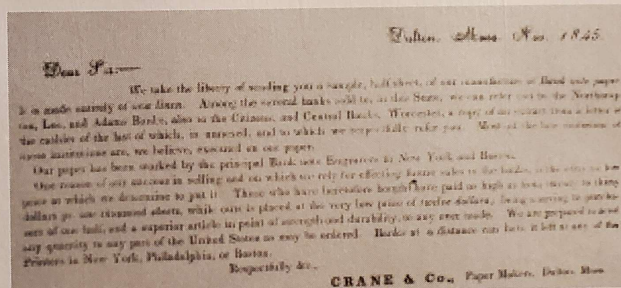 Dalton, Mass. Nov. 1845.
Dear Sir:—
We take the liberty of sending you a sample, half sheet, of our manufacture of Bank note paper
It is made entirely of new linen. Among the several banks sold to, in this State, we can refer you to the Northamp
ton, Lee, and Adams Banks, also to the Citizens, and Central Banks, Worcester, a copy of an extract from a letter of
the cashier of the last of which, is annexed, and to which we respectfully refer you. Most of the late emissions of
these institutions are, we believe, executed on our paper.
Our paper has been worked by the principal Bank note Engravers in New York and Boston.
One reason of our success in selling and on which we rely for effecting future sales to the banks, is the very low
price at which we determine to put it. Those who have heretofore bought have paid as high as to thirty
dollars per one thousand sheets, while ours is placed at the very low price of twelve dollars, being a saving to purcha-
sers of one half, and a superior article in point of strength and durability, to any ever made. We are prepared to send
any quantity to any part of the United States as may be ordered. Banks at a distance can have it left at any of the
Printers in New York, Philadelphia, or Boston.
Respectfully &c.,
CRANE & Co., Paper Makers, Dalton, Mass